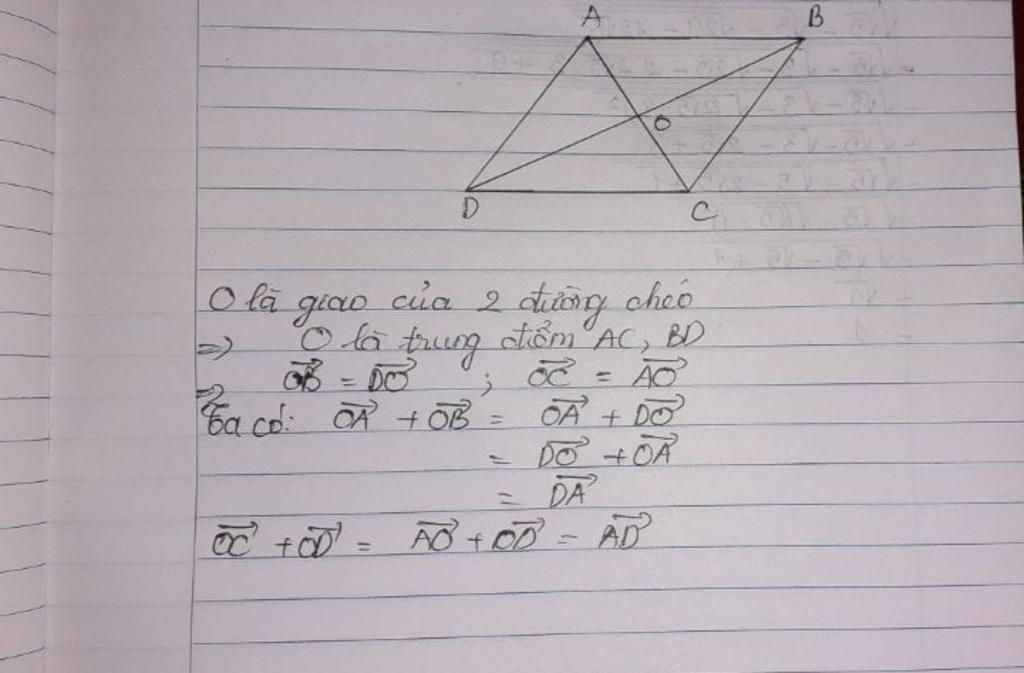 A B
O
D C
O là giao của 2 đường chéo
=> O là trung điểm AC, BD
=> \overrightarrow{OB} = \overrightarrow{DO} ; \overrightarrow{OC} = \overrightarrow{AO}
Ta có: \overrightarrow{OA} + \overrightarrow{OB} = \overrightarrow{OA} + \overrightarrow{DO}
= \overrightarrow{DO} + \overrightarrow{OA}
= \overrightarrow{DA}
\overrightarrow{OC} + \overrightarrow{OD} = \overrightarrow{AO} + \overrightarrow{OD} = \overrightarrow{AD}